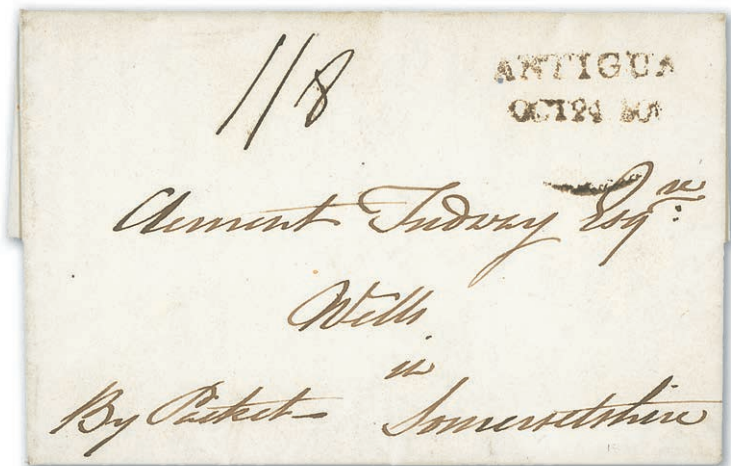 1/8
ANTIGUA
OCT 24 80
Clement Tudway Esqre:
Wells
in
By Packet Somersetshire